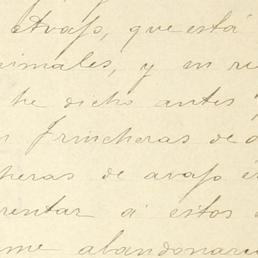 Avapo, que está
nimales, y un re
he dicho antes
n trincheras de a
cheras de avapo e
rentar á estos
me abandonaro